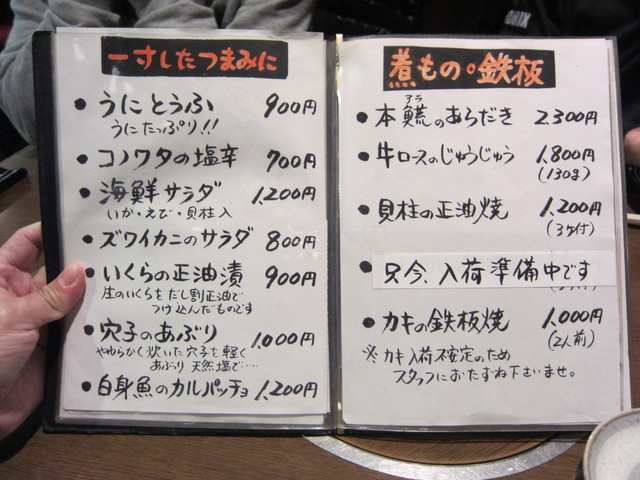 一寸したつまみに
うにとうふ 900円
うにたっぷり!!
コノワタの塩辛 700円
海鮮サラダ 1,200円
いか・えび・貝柱入
ズワイカニのサラダ 800円
いくらの正油漬 900円
生のいくらをだし割正油で
つけ込んだものです
穴子のあぶり 1,000円
やわらかく炊いた穴子を軽く
あぶり 天然塩で……
白身魚のカルパッチョ 1,200円
煮もの。鉄板
アラ
本鱶のあらだき 2,300円
牛ロースのじゅうじゅう 1,800円
(130g)
貝柱の正油焼 1,200円
(3ケ付)
只今、入荷準備中です
カキの鉄板焼 1,000円
(2人前)
※カキ入荷不安定のため
スタッフにおたずね下さいませ。